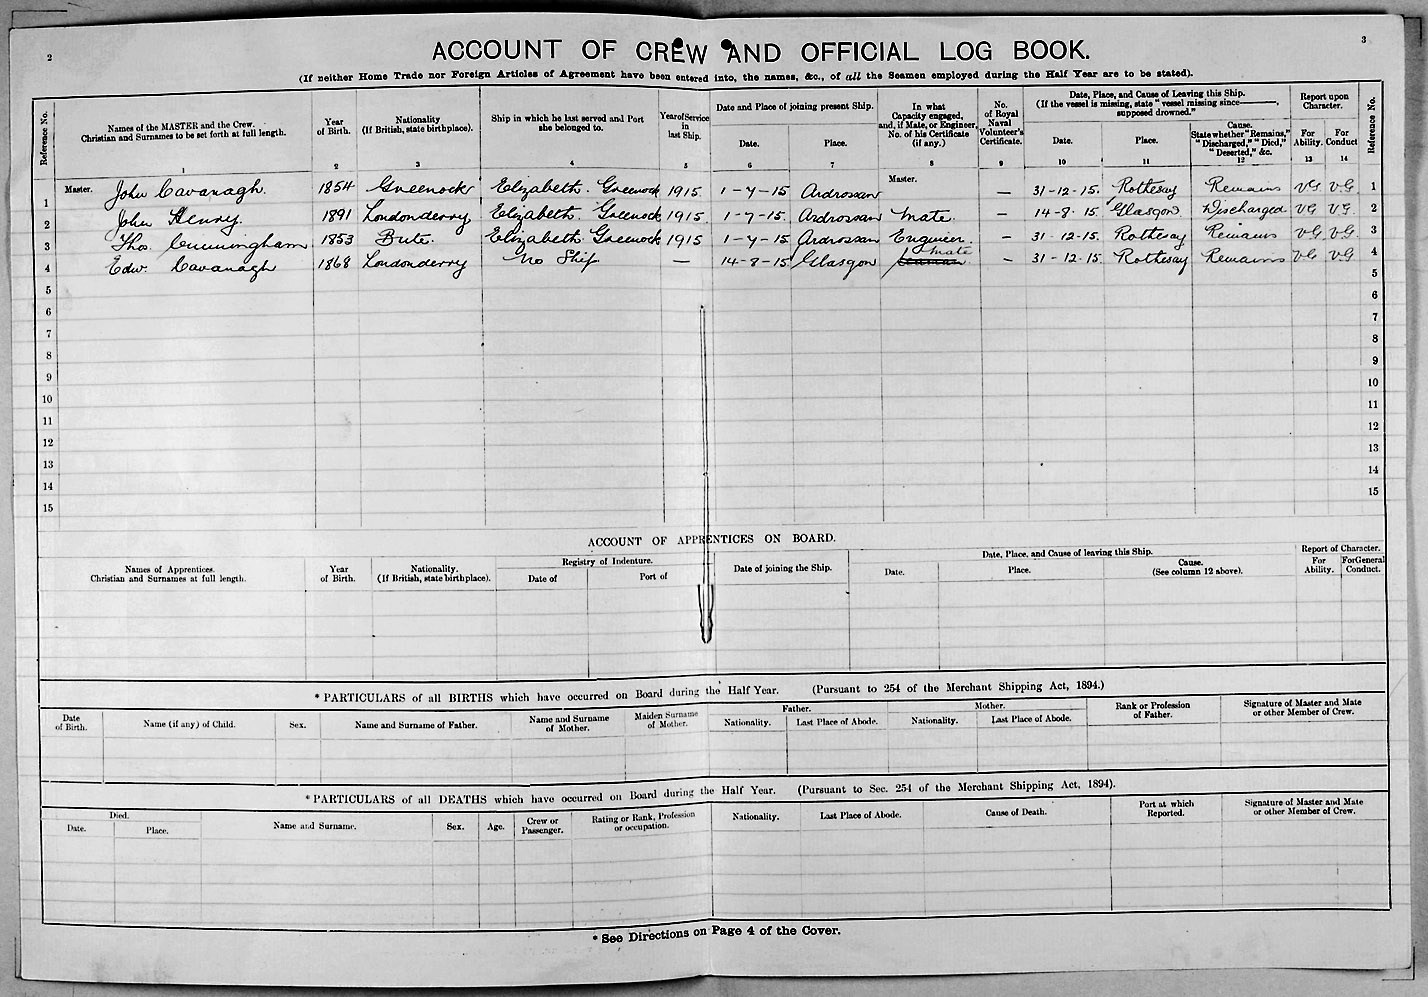 2
3
ACCOUNT OF CREW AND OFFICIAL LOG BOOK.
(If neither Home Trade nor Foreign Articles of Agreement have been entered into, the names, &c., of all the Seamen employed during the Half Year are to be stated).
Reference No.
Names of the MASTER and the Crew.
Christian and Surnames to be set forth at full length.
1
Year
of Birth.
2
Nationality
(If British, state birthplace).
3
Ship in which he last served and Port
she belonged to.
4
Year of Service
in
last Ship.
5
Date and Place of joining present Ship.
Date.
6
Place.
7
In what
Capacity engaged,
and, if Mate, or Engineer,
No. of his Certificate
(if any.)
8
No.
of Royal
Naval
Volunteer's
Certificate.
9
Date, Place, and Cause of Leaving this Ship.
(If the vessel is missing, state "vessel missing since———,
supposed drowned."
Date.
10
Place.
11
Cause.
State whether "Remains,"
"Discharged," "Died,"
"Deserted," &c.
12
Report upon
Character.
For
Ability.
13
For
Conduct
14
Reference No.
1 Master. John Cavanagh. 1854 Greenock Elizabeth. Greenock 1915 1-7-15 Ardrossan Master. — 31-12-15. Rothesay Remains VG VG 1
2 John Henry. 1891 Londonderry Elizabeth. Greenock 1915 1-7-15. Ardrossan Mate. — 14-8-15 Glasgow Discharged VG VG 2
3 Thos. Cunningham 1853 Bute. Elizabeth. Greenock 1915 1-7-15 Ardrossan Engineer. — 31-12-15. Rothesay Remains VG VG 3
4 Edw. Cavanagh 1868 Londonderry No Ship — 14-8-15 Glasgow Seaman Mate — 31-12-15 Rothesay Remains VG VG 4
5 5
6 6
7 7
8 8
9 9
10 10
11 11
12 12
13 13
14 14
15 15
ACCOUNT OF APPRENTICES ON BOARD.
Names of Apprentices.
Christian and Surnames at full length.
Year
of Birth.
Nationality.
(If British, state birthplace).
Registry of Indenture.
Date of
Port of
Date of joining the Ship.
Date, Place, and Cause of leaving this Ship.
Date.
Place.
Cause.
(See column 12 above).
Report of Character.
For
Ability.
For General
Conduct.
* PARTICULARS of all BIRTHS which have occurred on Board during the Half Year. (Pursuant to 254 of the Merchant Shipping Act, 1894.)
Date
of Birth.
Name (if any) of Child.
Sex.
Name and Surname of Father.
Name and Surname
of Mother.
Maiden Surname
of Mother.
Father.
Nationality.
Last Place of Abode.
Mother.
Nationality.
Last Place of Abode.
Rank or Profession
of Father.
Signature of Master and Mate
or other Member of Crew.
* PARTICULARS of all DEATHS which have occurred on Board during the Half Year. (Pursuant to Sec. 254 of the Merchant Shipping Act, 1894).
Died.
Date.
Place.
Name and Surname.
Sex.
Age.
Crew or
Passenger.
Rating or Rank, Profession
or occupation.
Nationality.
Last Place of Abode.
Cause of Death.
Port at which
Reported.
Signature of Master and Mate
or other Member of Crew.
* See Directions on Page 4 of the Cover.